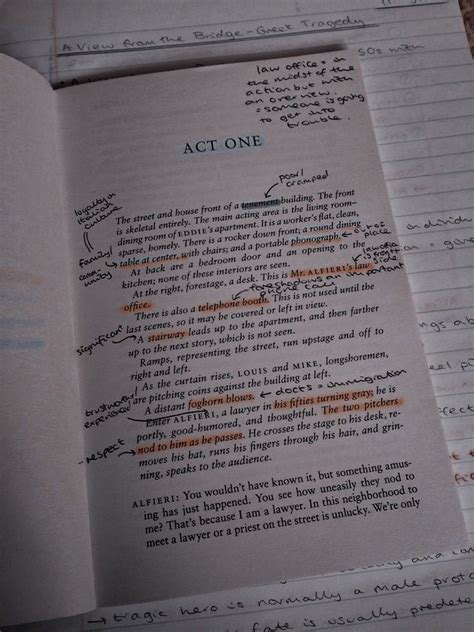 A View from the Bridge - Greek Tragedy
50s with
law office = in
the midst of the
action but with
an overview.
= someone is going
to get into
trouble.
ACT ONE
poor/
cramped
loyalty in
Italian
culture
The street and house front of a tenement building. The front
is skeletal entirely. The main acting area is the living room–
dining room of EDDIE's apartment. It is a worker's flat, clean,
sparse, homely. There is a rocker down front; a round dining
table at center, with chairs; and a portable phonograph.
out of
place
family/
community
At back are a bedroom door and an opening to the
kitchen; none of these interiors are seen.
At the right, forestage, a desk. This is Mr. ALFIERI's law
office.
law office
side
foreshadows an important
phone call
There is also a telephone booth. This is not used until the
last scenes, so it may be covered or left in view.
significant
A stairway leads up to the apartment, and then farther
up to the next story, which is not seen.
Ramps, representing the street, run upstage and off to
right and left.
As the curtain rises, LOUIS and MIKE, longshoremen,
are pitching coins against the building at left.
A distant foghorn blows.
docks = immigration
trustworthy
experienced
Enter ALFIERI, a lawyer in his fifties turning gray; he is
portly, good-humored, and thoughtful. The two pitchers
nod to him as he passes. He crosses the stage to his desk, re-
moves his hat, runs his fingers through his hair, and grin-
ning, speaks to the audience.
- respect
ALFIERI: You wouldn't have known it, but something amus-
ing has just happened. You see how uneasily they nod to
me? That's because I am a lawyer. In this neighborhood to
meet a lawyer or a priest on the street is unlucky. We're only
→ tragic hero is normally a male
fate is usually